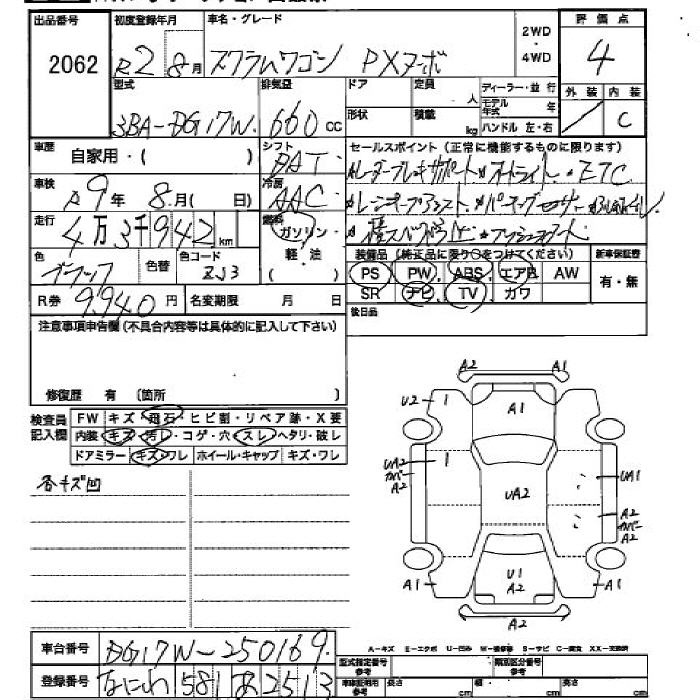 出品番号 初度登録年月 車名・グレード 2WD・4WD 評価点
2062 R2 8月 スクラムワゴン PXターボ 4
型式 排気量 ドア 定員 人 ディーラー・並行 外装 内装
3BA-DG17W 660cc 形状 積載 kg モデル年式 年 ハンドル 左・右 C
車歴 自家用・( ) シフト DAT セールスポイント(正常に機能するものに限ります)
レーダーブレーキサポート オートライト ETC
車検 R9年 8月( 日) 冷房 AAC
走行 4万3千942km 燃料 ガソリン・軽油( )
プッシュスタート
色 ブラック 色替 色コード ZJ3
装備品(純正品に限り○をつけてください) 新車保証書
PS PW ABS エアB AW 有・無
SR ナビ TV カワ
R券 9,940円 名変期限 月 日
後日品
注意事項申告欄(不具合内容等は具体的に記入して下さい)
修復歴 有 [箇所 ]
検査員記入欄 FW キズ・飛石・ヒビ割・リペア跡・X要
内装 キズ・汚レ・コゲ・穴・スレ・ヘタリ・破レ
ドアミラー キズ・ワレ ホイール・キャップ キズ・ワレ
各キズ凹
A2 A1
U2 1 A1
1
UA2 カバー A2 UA2 UA1
A2 カバー A2
A1 U1 A2 A1
A2
A-キズ E-エクボ U-凹み W-補修跡 S-サビ C-腐食 XX-交換済
車台番号 DG17W-250169
型式指定番号 参考 類別区分番号 参考
登録番号 なにわ 581 あ 2513
車庫証明用 参考 長さ cm 幅 cm 高さ cm